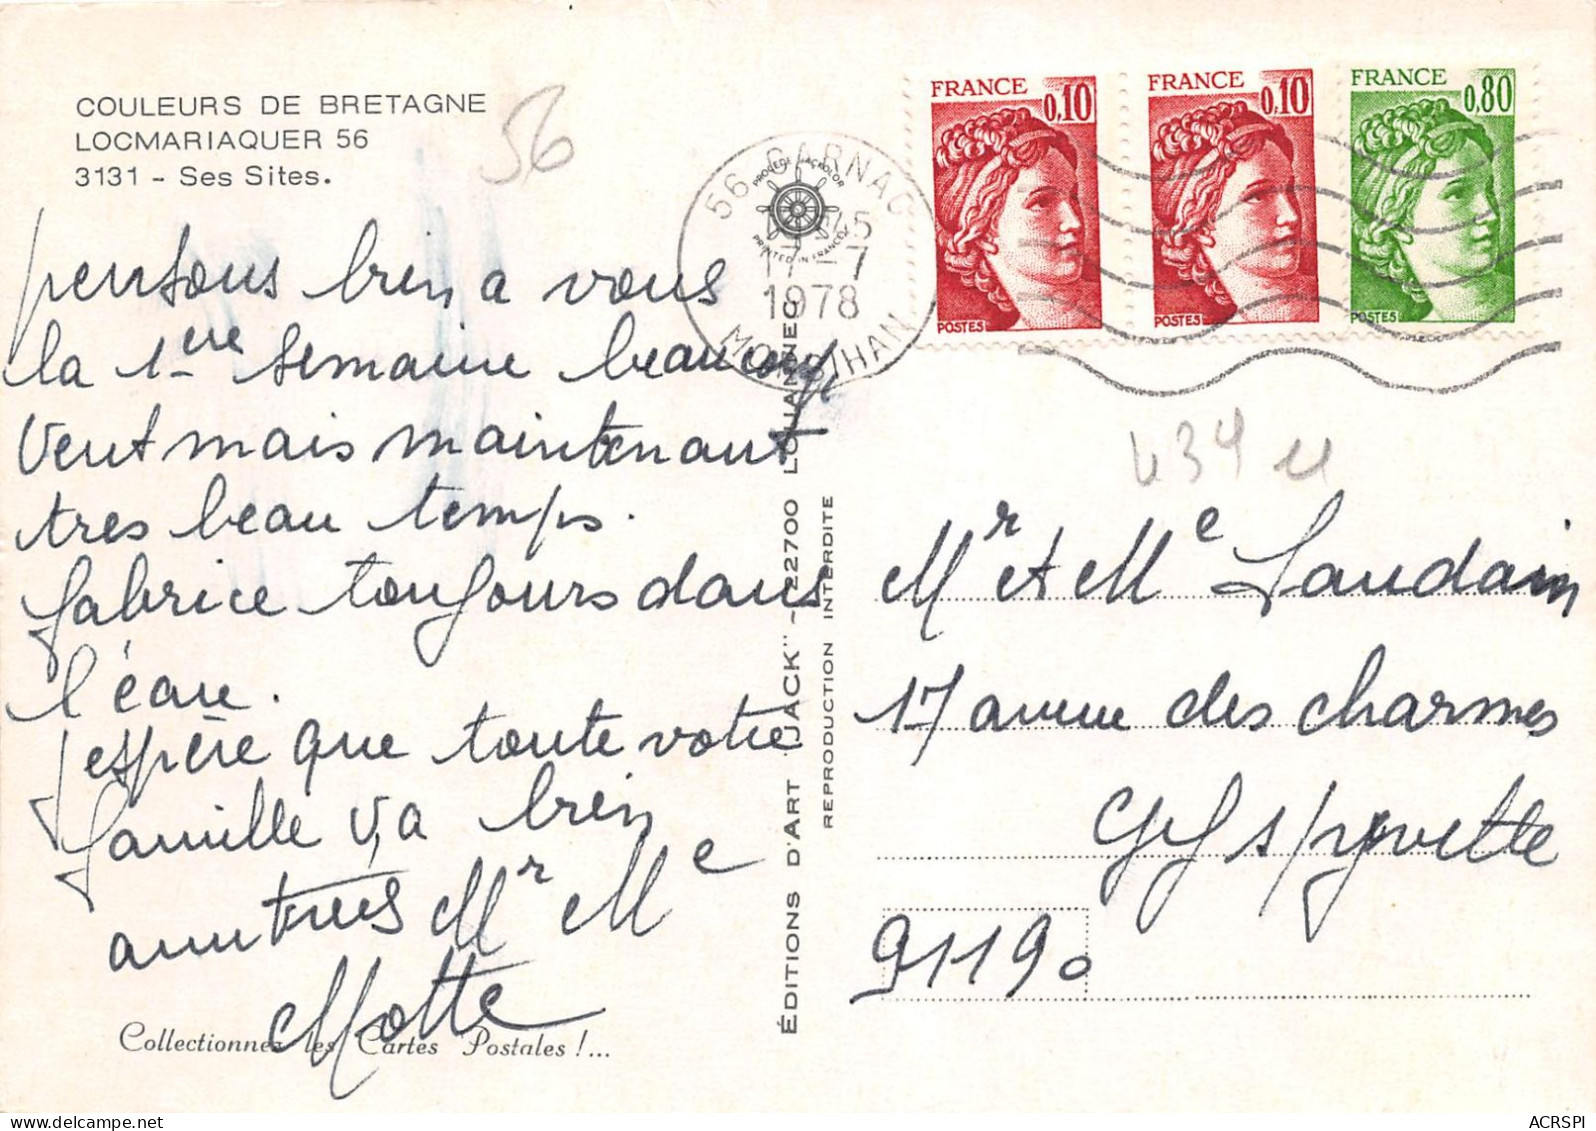 COULEURS DE BRETAGNE
LOCMARIAQUER 56
3131 - Ses Sites.
56
pensons bien a vous
la 1ere semaine beaucoup
vent mais maintenant
tres beau temps.
fabrice toujours dans
l'eau.
J'espère que toute votre
famille va bien
amitiés Mr Me
Motte
Collectionnez les Cartes Postales !...
ÉDITIONS D'ART "JACK" - 22700 LOUANNEC
REPRODUCTION INTERDITE
PROCÉDÉ LACROLOR
PRINTED IN FRANCE
56 CARNAC
45
17-7
1978
MORBIHAN
FRANCE
0,10
POSTES
FRANCE
0,10
POSTES
FRANCE
0,80
POSTES
Mr et Me Laudain
17 avenue des charmes
Gif s/ yvette
91190
ACRSPI